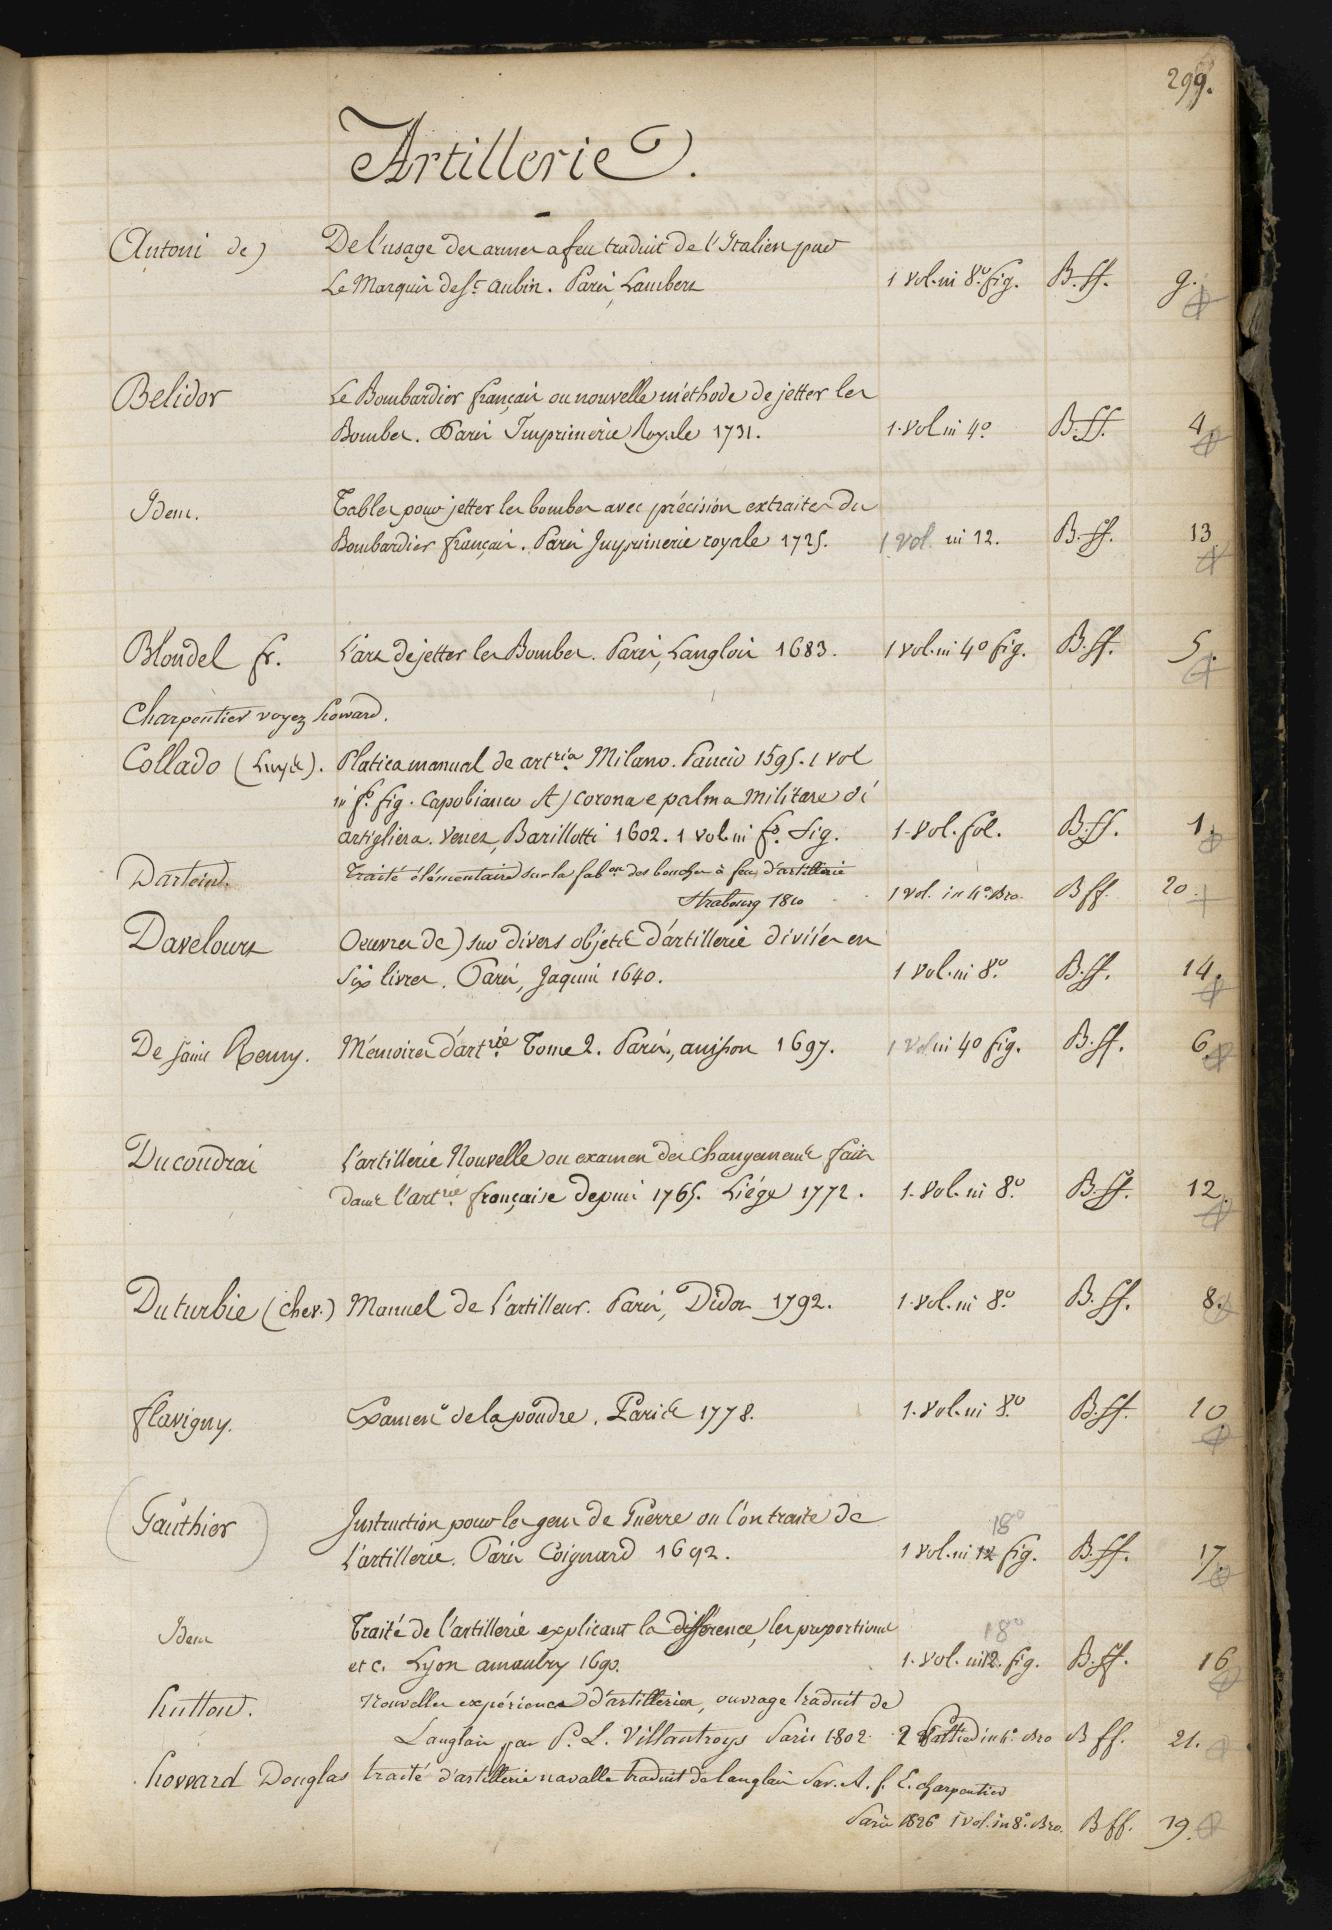 299.
Artillerie.
Antoni de) De l'usage des armes a feu traduit de l'Italien par
Le Marquis de St. Aubin. Paris, Lambert 1 Vol. in 8.° fig. B. ff. 9.
Belidor Le Bombardier français ou nouvelle méthode de jetter les
Bombes. Paris Imprimerie Royale 1731. 1. Vol in 4.° B. ff. 4.
Idem. Tables pour jetter les bombes avec précision extraites du
Bombardier français. Paris Imprimerie royale 1725. 1 vol. in 12. B. ff. 13
Blondel fr. L'art de jetter les Bombes. Paris, Langlois 1683. 1 Vol. in 4.° fig. B. ff. 5.
Charpentier voyez howard.
Collado (Luys). Platica manual de art.ria Milano. Pancio 1595. 1 vol
in f.° fig. Capobianco A) corona e palma militare di
artigliera. Venez, Barillotti 1602. 1 vol in f.° fig. 1. Vol. fol. B. ff. 1.
Dartein. Traité élémentaire sur la fab.on des bouches à feu d'artillerie
Strasbourg 1810 1 Vol. in 4.° Bro. B ff. 20.
Davelourt Oeuvres de) sur divers objets d'artillerie divisés en
Six livres. Paris, Jaquin 1640. 1 Vol. in 8.° B. ff. 14.
De Saint Remy. Mémoires d'art.rie Tome 2. Paris, anisson 1697. 1 Vol in 4.° fig. B. ff. 6.
Ducoudrai L'artillerie Nouvelle ou examen des changements faits
dans l'art.rie française depuis 1765. Liége 1772. 1. Vol. in 8.° B. ff. 12.
Duturbie (chev.) Manuel de l'artilleur. Paris, Didot 1792. 1. Vol. in 8.° B. ff. 8.
Flavigny. Examen de la poudre. Paris 1778. 1. Vol. in 8.° B. ff. 10
Gauthier Instruction pour les gens de Guerre ou l'on traite de
18°
L'artillerie. Paris Coignard 1692. 1 Vol. in 12 fig. B. ff. 17.
Idem Traité de l'artillerie explicant la différence, les proportions
18°
etc. Lyon amaulry 1690. 1. Vol. in 12. fig. B. ff. 16
hutton. Nouvelles expériences d'artilleries, ouvrage traduit de
Langlais par P. L. Villantroys Paris 1802. 2 Parties in 4.° Bro B ff. 21.
howard Douglas traité d'artillerie navalle traduit de langlais Par. A. f. E. charpentier
Paris 1826 1 vol. in 8.° Bro. B ff. 19.